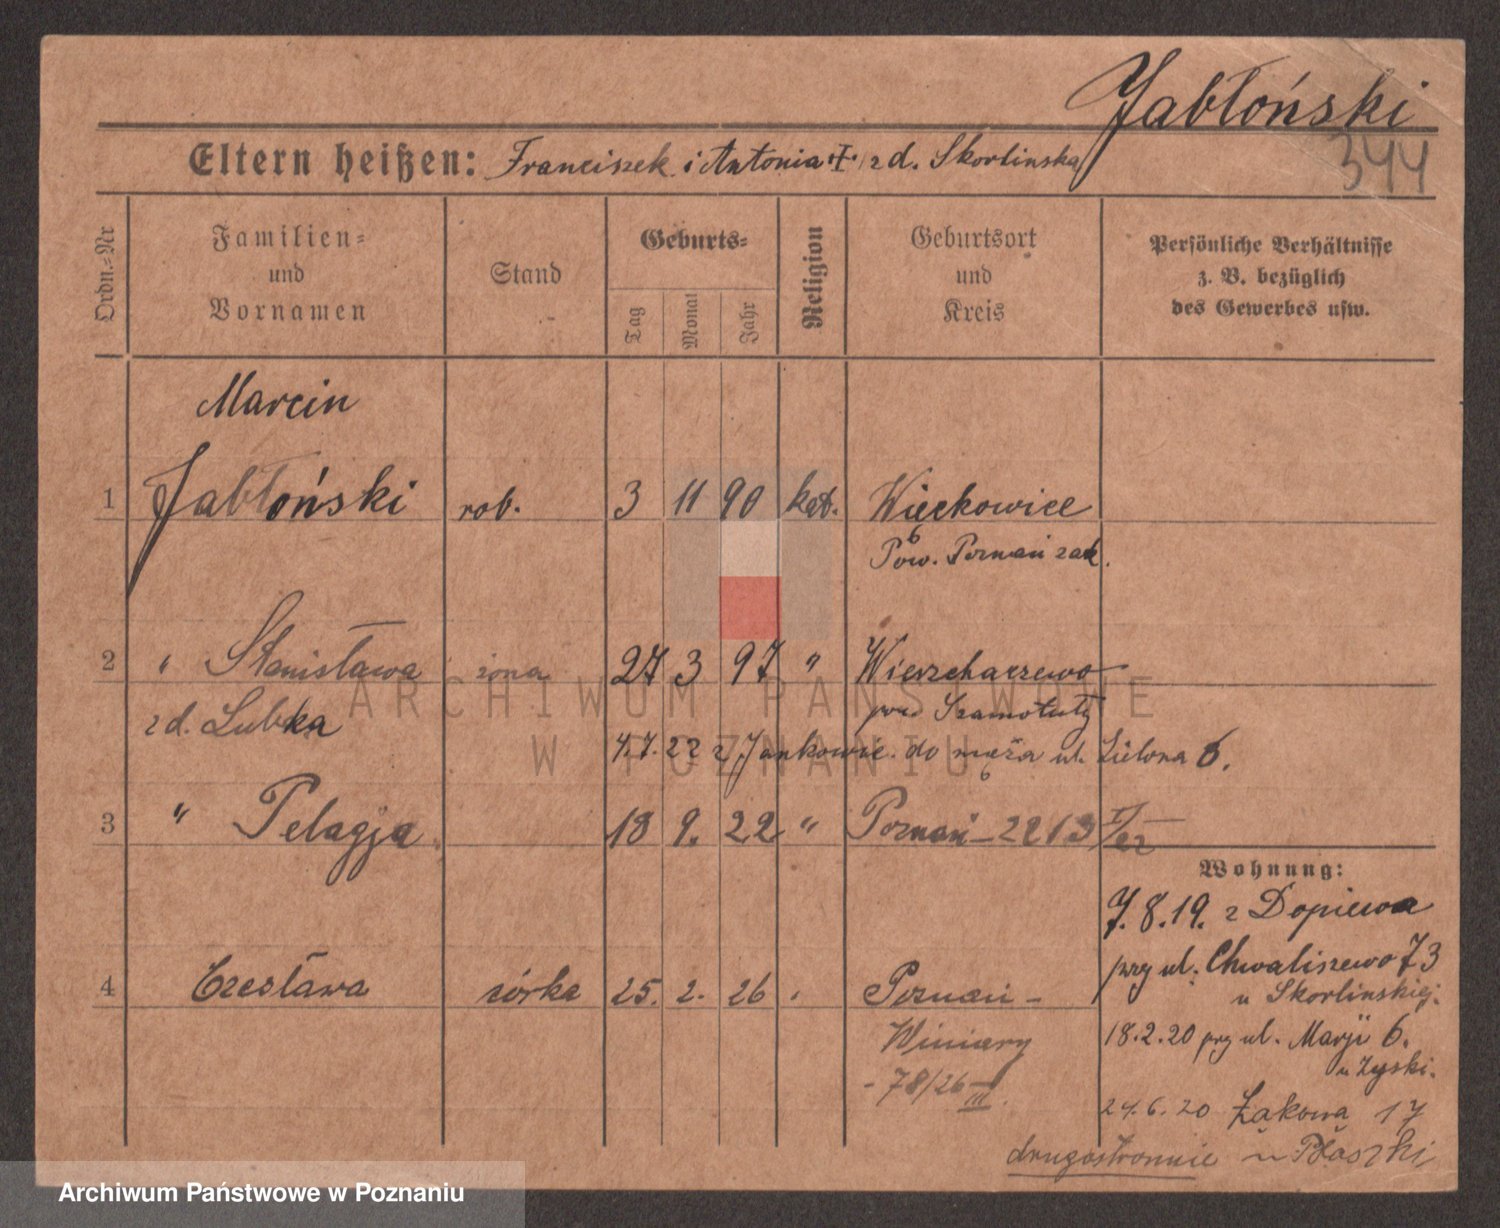 Jabłoński
344
Eltern heißen: Franciszek i Antonia z d. Skorlinska
Ordn.-Nr
Familien- und Vornamen
Stand
Geburts-
Tag Monat Jahr
Religion
Geburtsort und Kreis
Persönliche Verhältnisse
z. B. bezüglich
des Gewerbes usw.
Marcin
1 Jabłoński rob. 3 11 90 kat. Więckowice
Pow. Poznań zach.
2 " Stanisława żona 27 3 97 " Wierzchaczewo
z d. Lubka pow. Szamotuły
4.7.22 z Jankowic do męża ul. Zielona 6.
3 " Pelagja 18 9. 22 " Poznań – 2213
Wohnung:
7.8.19. z Dopiewa
przy ul. Chwaliszewo 73
u Skorlinskiej.
4 Czesława córka 25. 2. 26 Poznań –
Winiary
- 78/26 III.
18.2.20 przy ul. Marji 6.
u Zyski.
24.6.20 Łąkowa 17
drugostronnie u Płaszki
ARCHIWUM PAŃSTWOWE
W POZNANIU
Archiwum Państwowe w Poznaniu